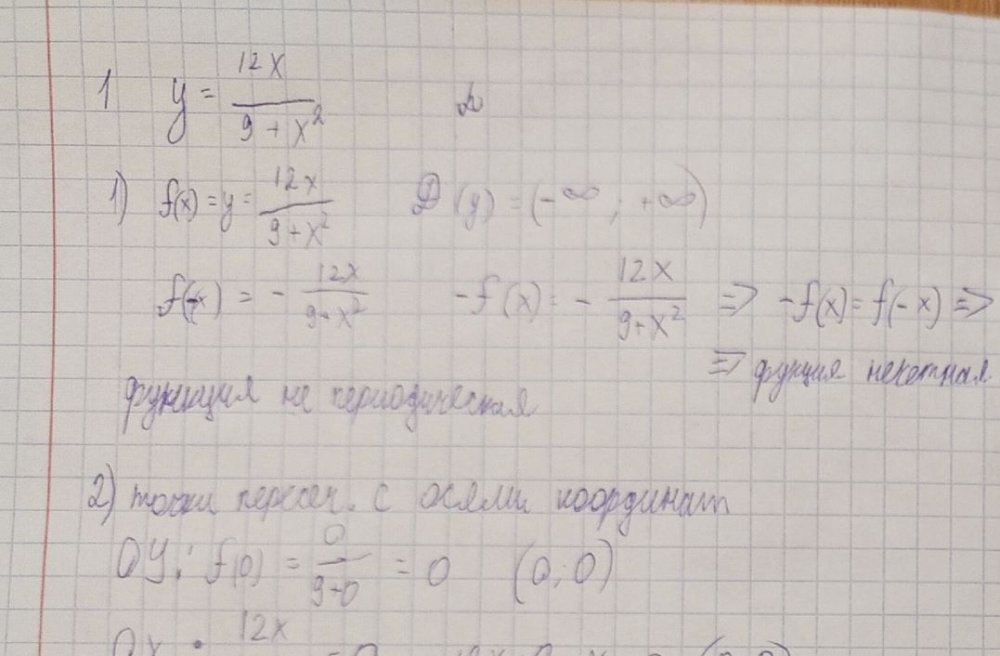 1 y = 12x / (9 + x²)
1) f(x) = y = 12x / (9 + x²) D(y) = (-∞ ; +∞)
f(-x) = - 12x / (9+x²) -f(x) = - 12x / (9+x²) => -f(x) = f(-x) =>
=> фукция нечетная
функция не периодическая
2) точки пересеч. с осями координат
OY: f(0) = 0 / (9+0) = 0 (0; 0)
OX: 12x